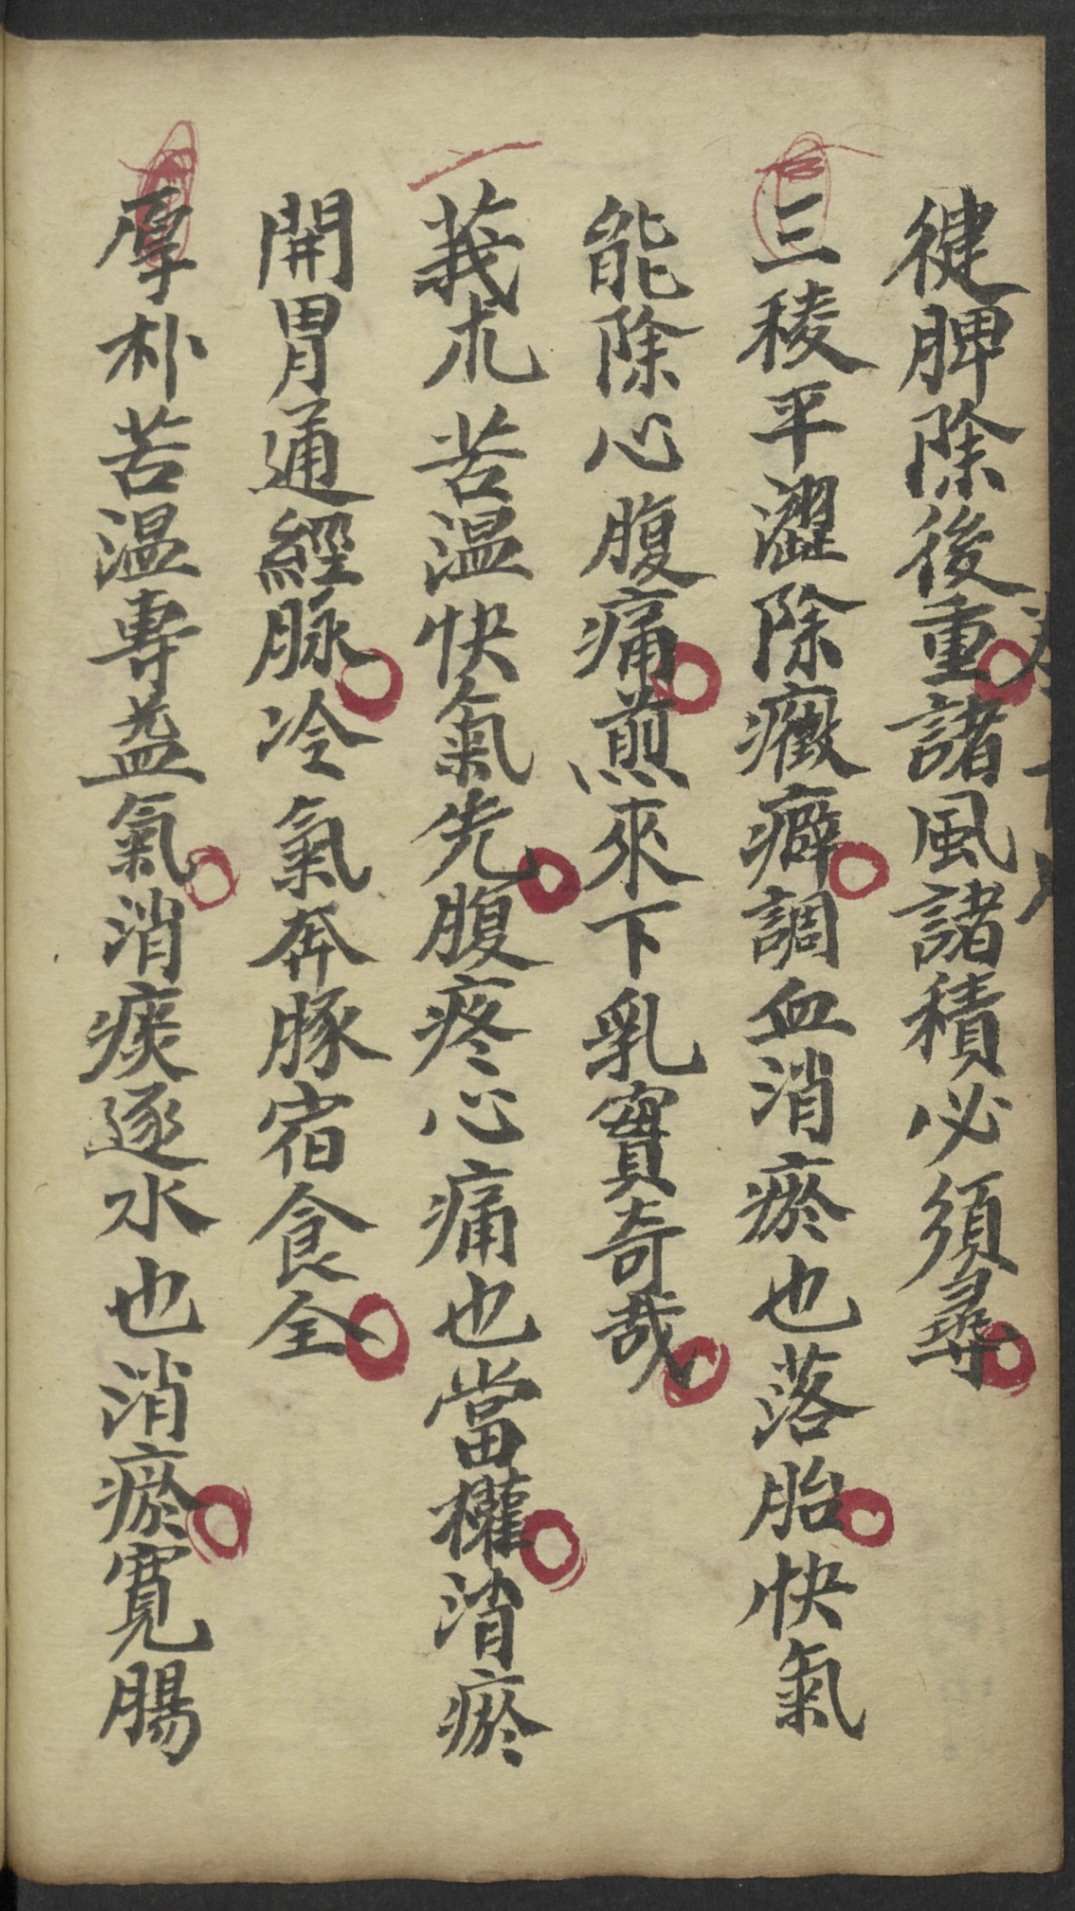 健脾除後重諸風諸積必須尋
三稜平澀除癥癖調血消瘀也落胎快氣
能除心腹痛煎來下乳實奇哉
莪朮苦溫快氣先腹疼心痛也當權消瘀
開胃通經脉冷氣奔豚宿食全
厚朴苦温專益氣消痰逐水也消瘀寬腸